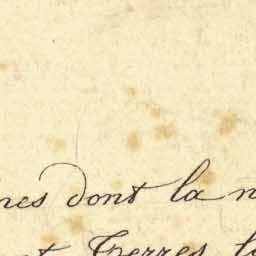 nes dont la n
nt Terres, la